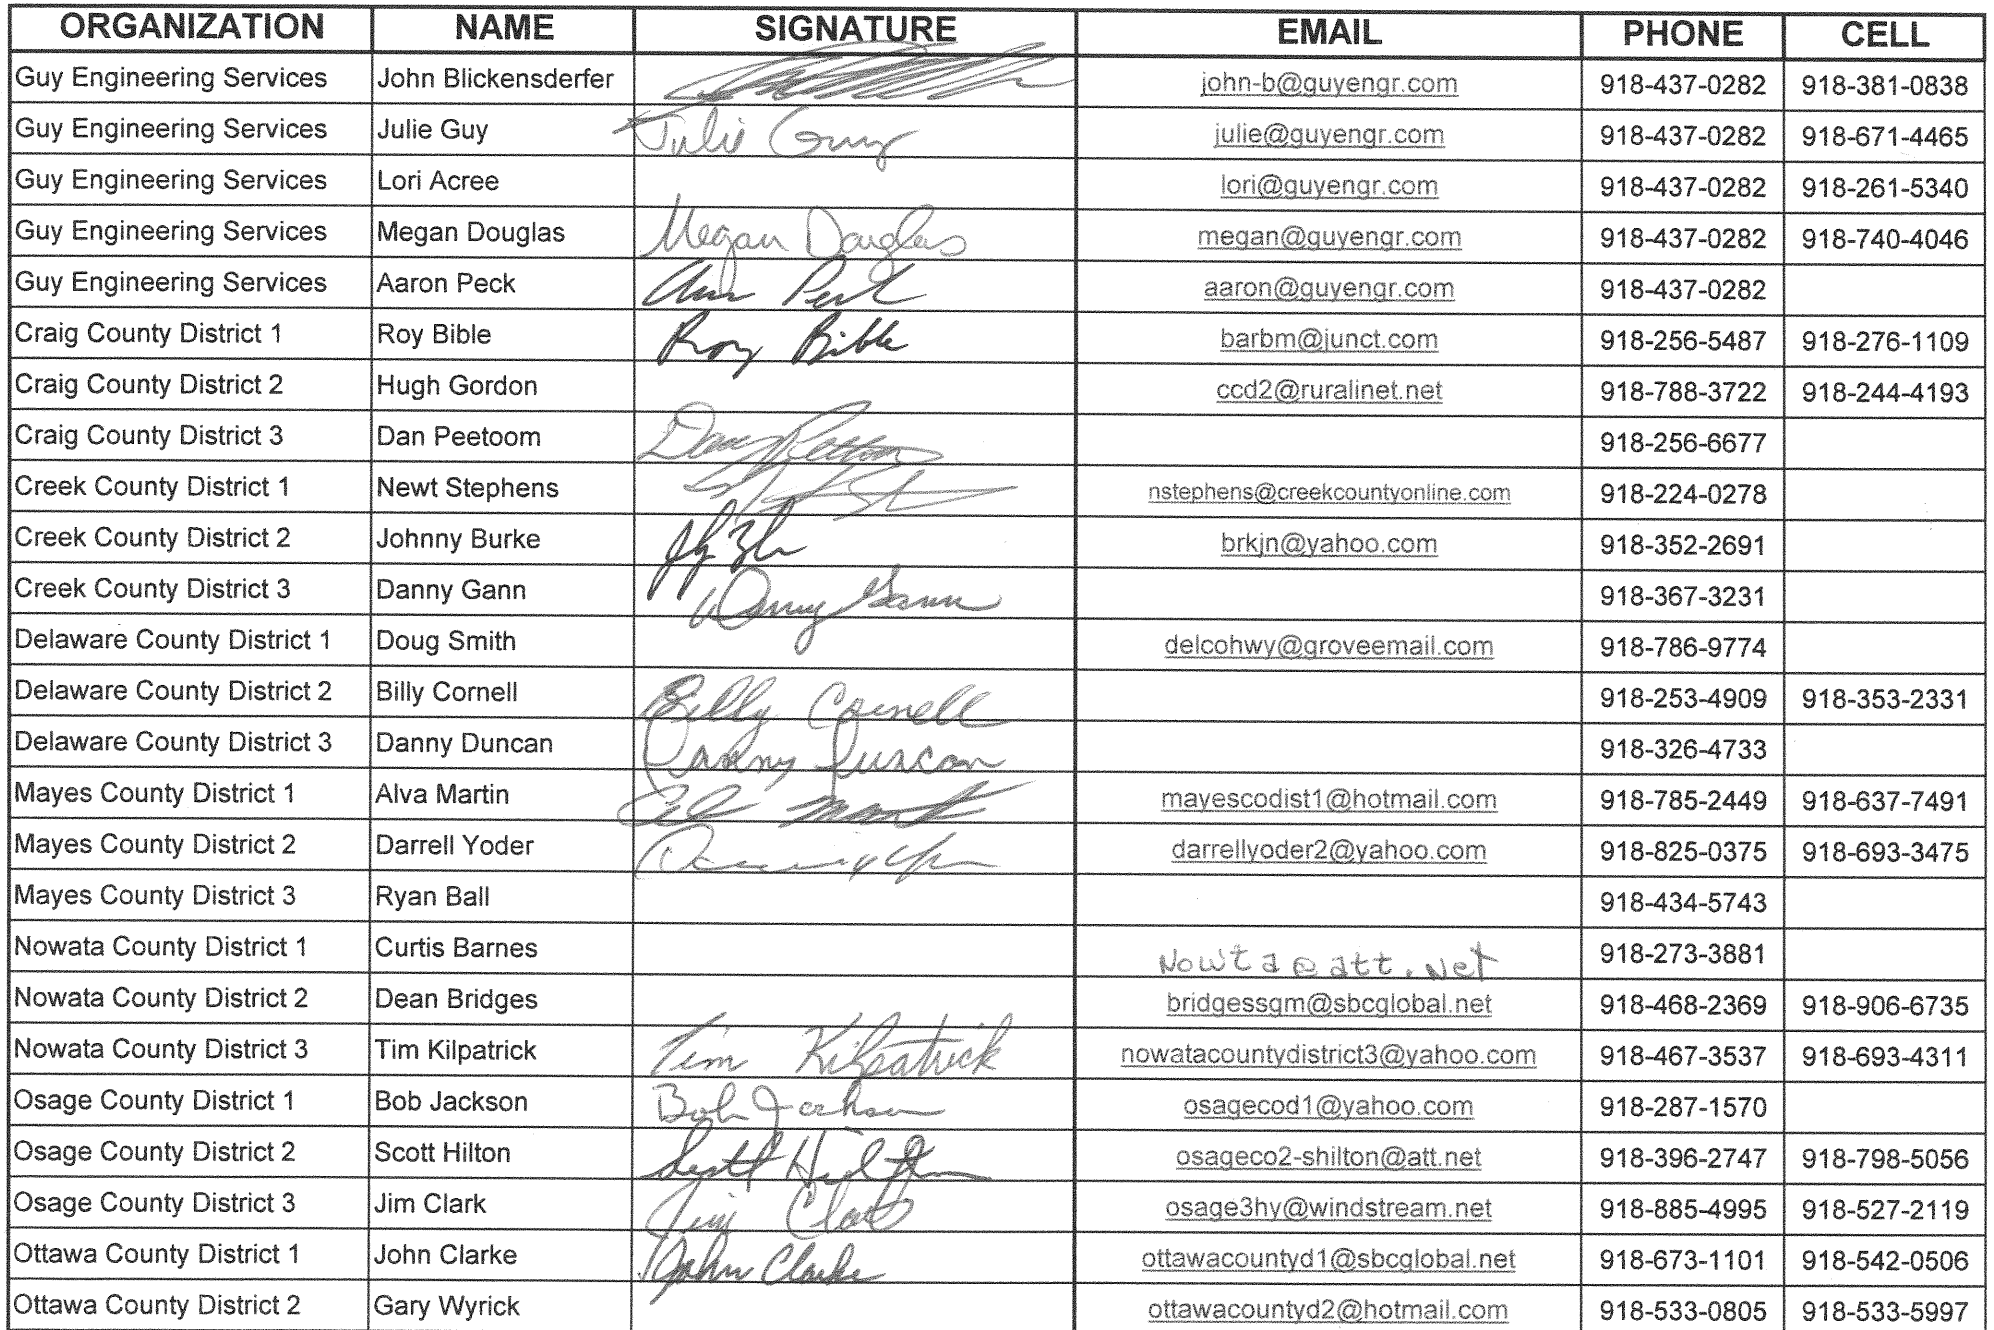 ORGANIZATION NAME SIGNATURE EMAIL PHONE CELL
Guy Engineering Services John Blickensderfer john-b@guyengr.com 918-437-0282 918-381-0838
Guy Engineering Services Julie Guy Julie Guy julie@guyengr.com 918-437-0282 918-671-4465
Guy Engineering Services Lori Acree lori@guyengr.com 918-437-0282 918-261-5340
Guy Engineering Services Megan Douglas Megan Douglas megan@guyengr.com 918-437-0282 918-740-4046
Guy Engineering Services Aaron Peck aaron@guyengr.com 918-437-0282
Craig County District 1 Roy Bible Roy Bible barbm@junct.com 918-256-5487 918-276-1109
Craig County District 2 Hugh Gordon ccd2@ruralinet.net 918-788-3722 918-244-4193
Craig County District 3 Dan Peetoom 918-256-6677
Creek County District 1 Newt Stephens nstephens@creekcountyonline.com 918-224-0278
Creek County District 2 Johnny Burke brkjn@yahoo.com 918-352-2691
Creek County District 3 Danny Gann Danny Gann 918-367-3231
Delaware County District 1 Doug Smith delcohwy@groveemail.com 918-786-9774
Delaware County District 2 Billy Cornell Billy Cornell 918-253-4909 918-353-2331
Delaware County District 3 Danny Duncan Danny Duncan 918-326-4733
Mayes County District 1 Alva Martin mayescodist1@hotmail.com 918-785-2449 918-637-7491
Mayes County District 2 Darrell Yoder darrellyoder2@yahoo.com 918-825-0375 918-693-3475
Mayes County District 3 Ryan Ball 918-434-5743
Nowata County District 1 Curtis Barnes Nowta@att.net 918-273-3881
Nowata County District 2 Dean Bridges bridgessgm@sbcglobal.net 918-468-2369 918-906-6735
Nowata County District 3 Tim Kilpatrick Tim Kilpatrick nowatacountydistrict3@yahoo.com 918-467-3537 918-693-4311
Osage County District 1 Bob Jackson Bob Jackson osagecod1@yahoo.com 918-287-1570
Osage County District 2 Scott Hilton Scott Hilton osageco2-shilton@att.net 918-396-2747 918-798-5056
Osage County District 3 Jim Clark Jim Clark osage3hy@windstream.net 918-885-4995 918-527-2119
Ottawa County District 1 John Clarke John Clarke ottawacountyd1@sbcglobal.net 918-673-1101 918-542-0506
Ottawa County District 2 Gary Wyrick ottawacountyd2@hotmail.com 918-533-0805 918-533-5997